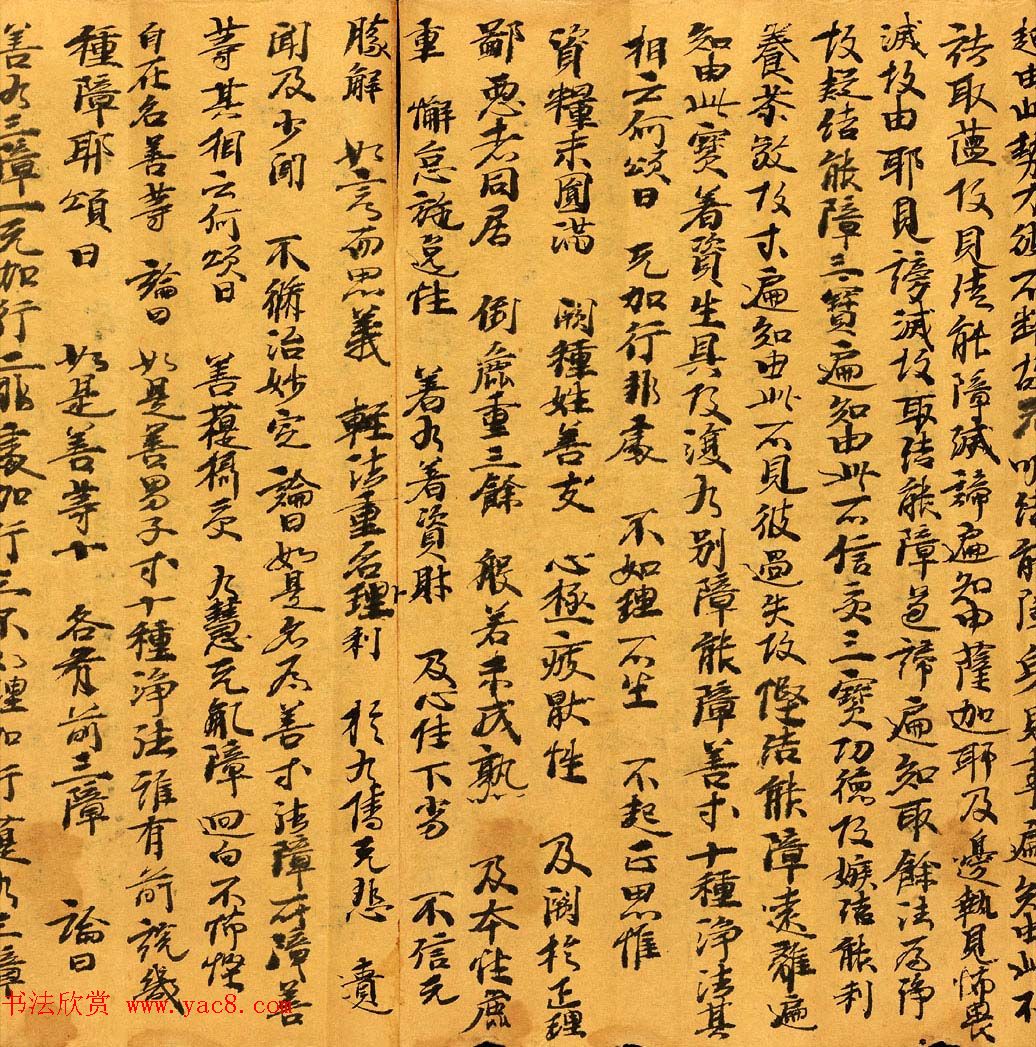 起由此勢力彼不斷故无明結能障身見事遍知由此不
捨取蘊故見結能障滅諦遍知由薩伽耶及邊執見怖畏
滅故由耶見謗滅故取結能障道諦遍知取餘法為淨
故疑結能障三寶遍知由此不信受三寶功德故嫉結能利
養恭敬故等遍知由此不見彼過失故慳結能障遠離遍
知由此寶著資生具故復有別障能障善等十種淨法其
相云何頌曰 无加行非處 不如理不生 不起正思惟
資糧未圓滿 闕種姓善友 心極疲猒性 及闕於正理
鄙惡者同居 倒麁重三餘 般若未成熟 及本性麁
重 懈怠放逸性 著有著資財 及心性下劣 不信无
勝解 如言而思義 輕法重名理利 於有情无悲 匱
聞及少聞 不修治妙定 論曰如是名為善等法障所障善
等其相云何頌曰 善菩提攝受 有慧无亂障 迴向不怖慳
自在名善等 論曰 如是善男子等十種淨法誰有前說幾
種障耶頌曰 如是善等十 各有前三障 論曰
善有三障一无加行二非處加行三不如理加行菩提有三障
书法欣赏 www.yac8.com